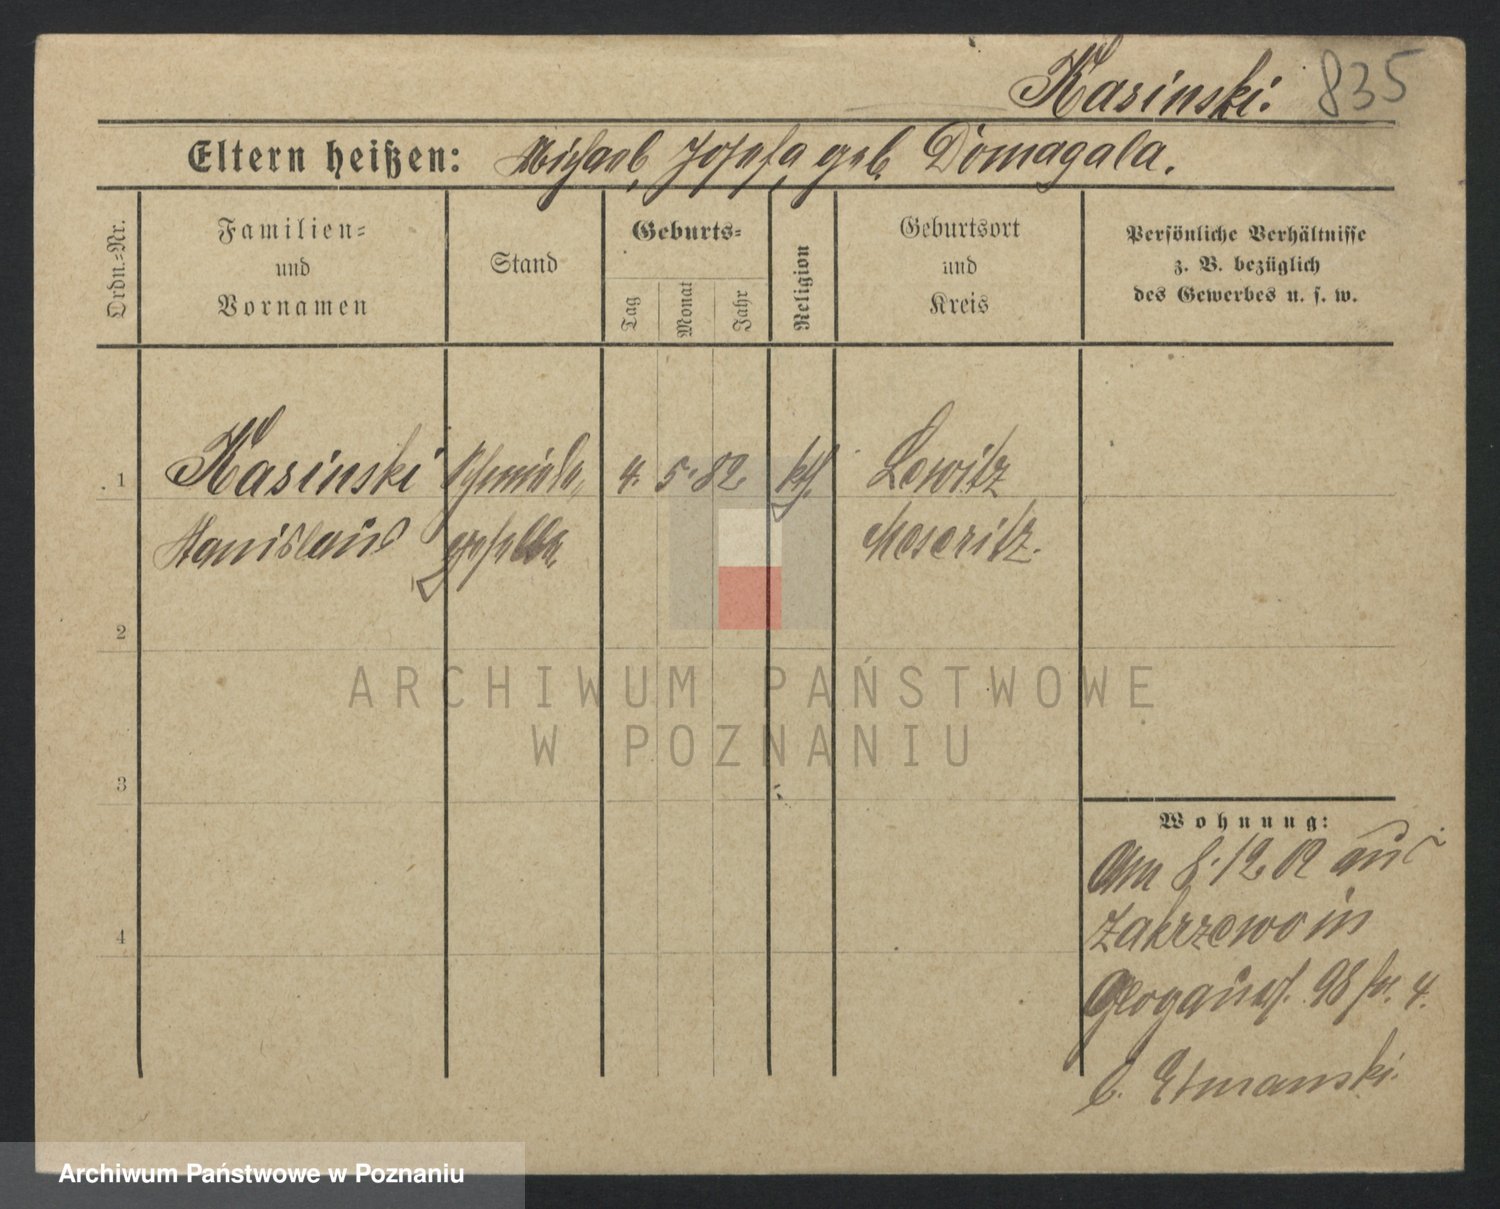 Kasinski. 835
Eltern heißen: Michael, Josefa, geb. Domagala.
Ordn.-Nr.
Familien-
und
Vornamen
Stand
Geburts-
Tag
Monat
Jahr
Religion
Geburtsort
und
Kreis
Persönliche Verhältnisse
z. B. bezüglich
des Gewerbes u. s. w.
1 Kasinski Schmiede- 4. 5. 82 kth. Lewitz
Stanislaus geselle Meseritz.
2
3
4
Wohnung:
Am 8.12.02 aus
Zakrzewo in
Glogauerst. 98 4.
b. Etmanski.
ARCHIWUM PAŃSTWOWE
W POZNANIU
Archiwum Państwowe w Poznaniu